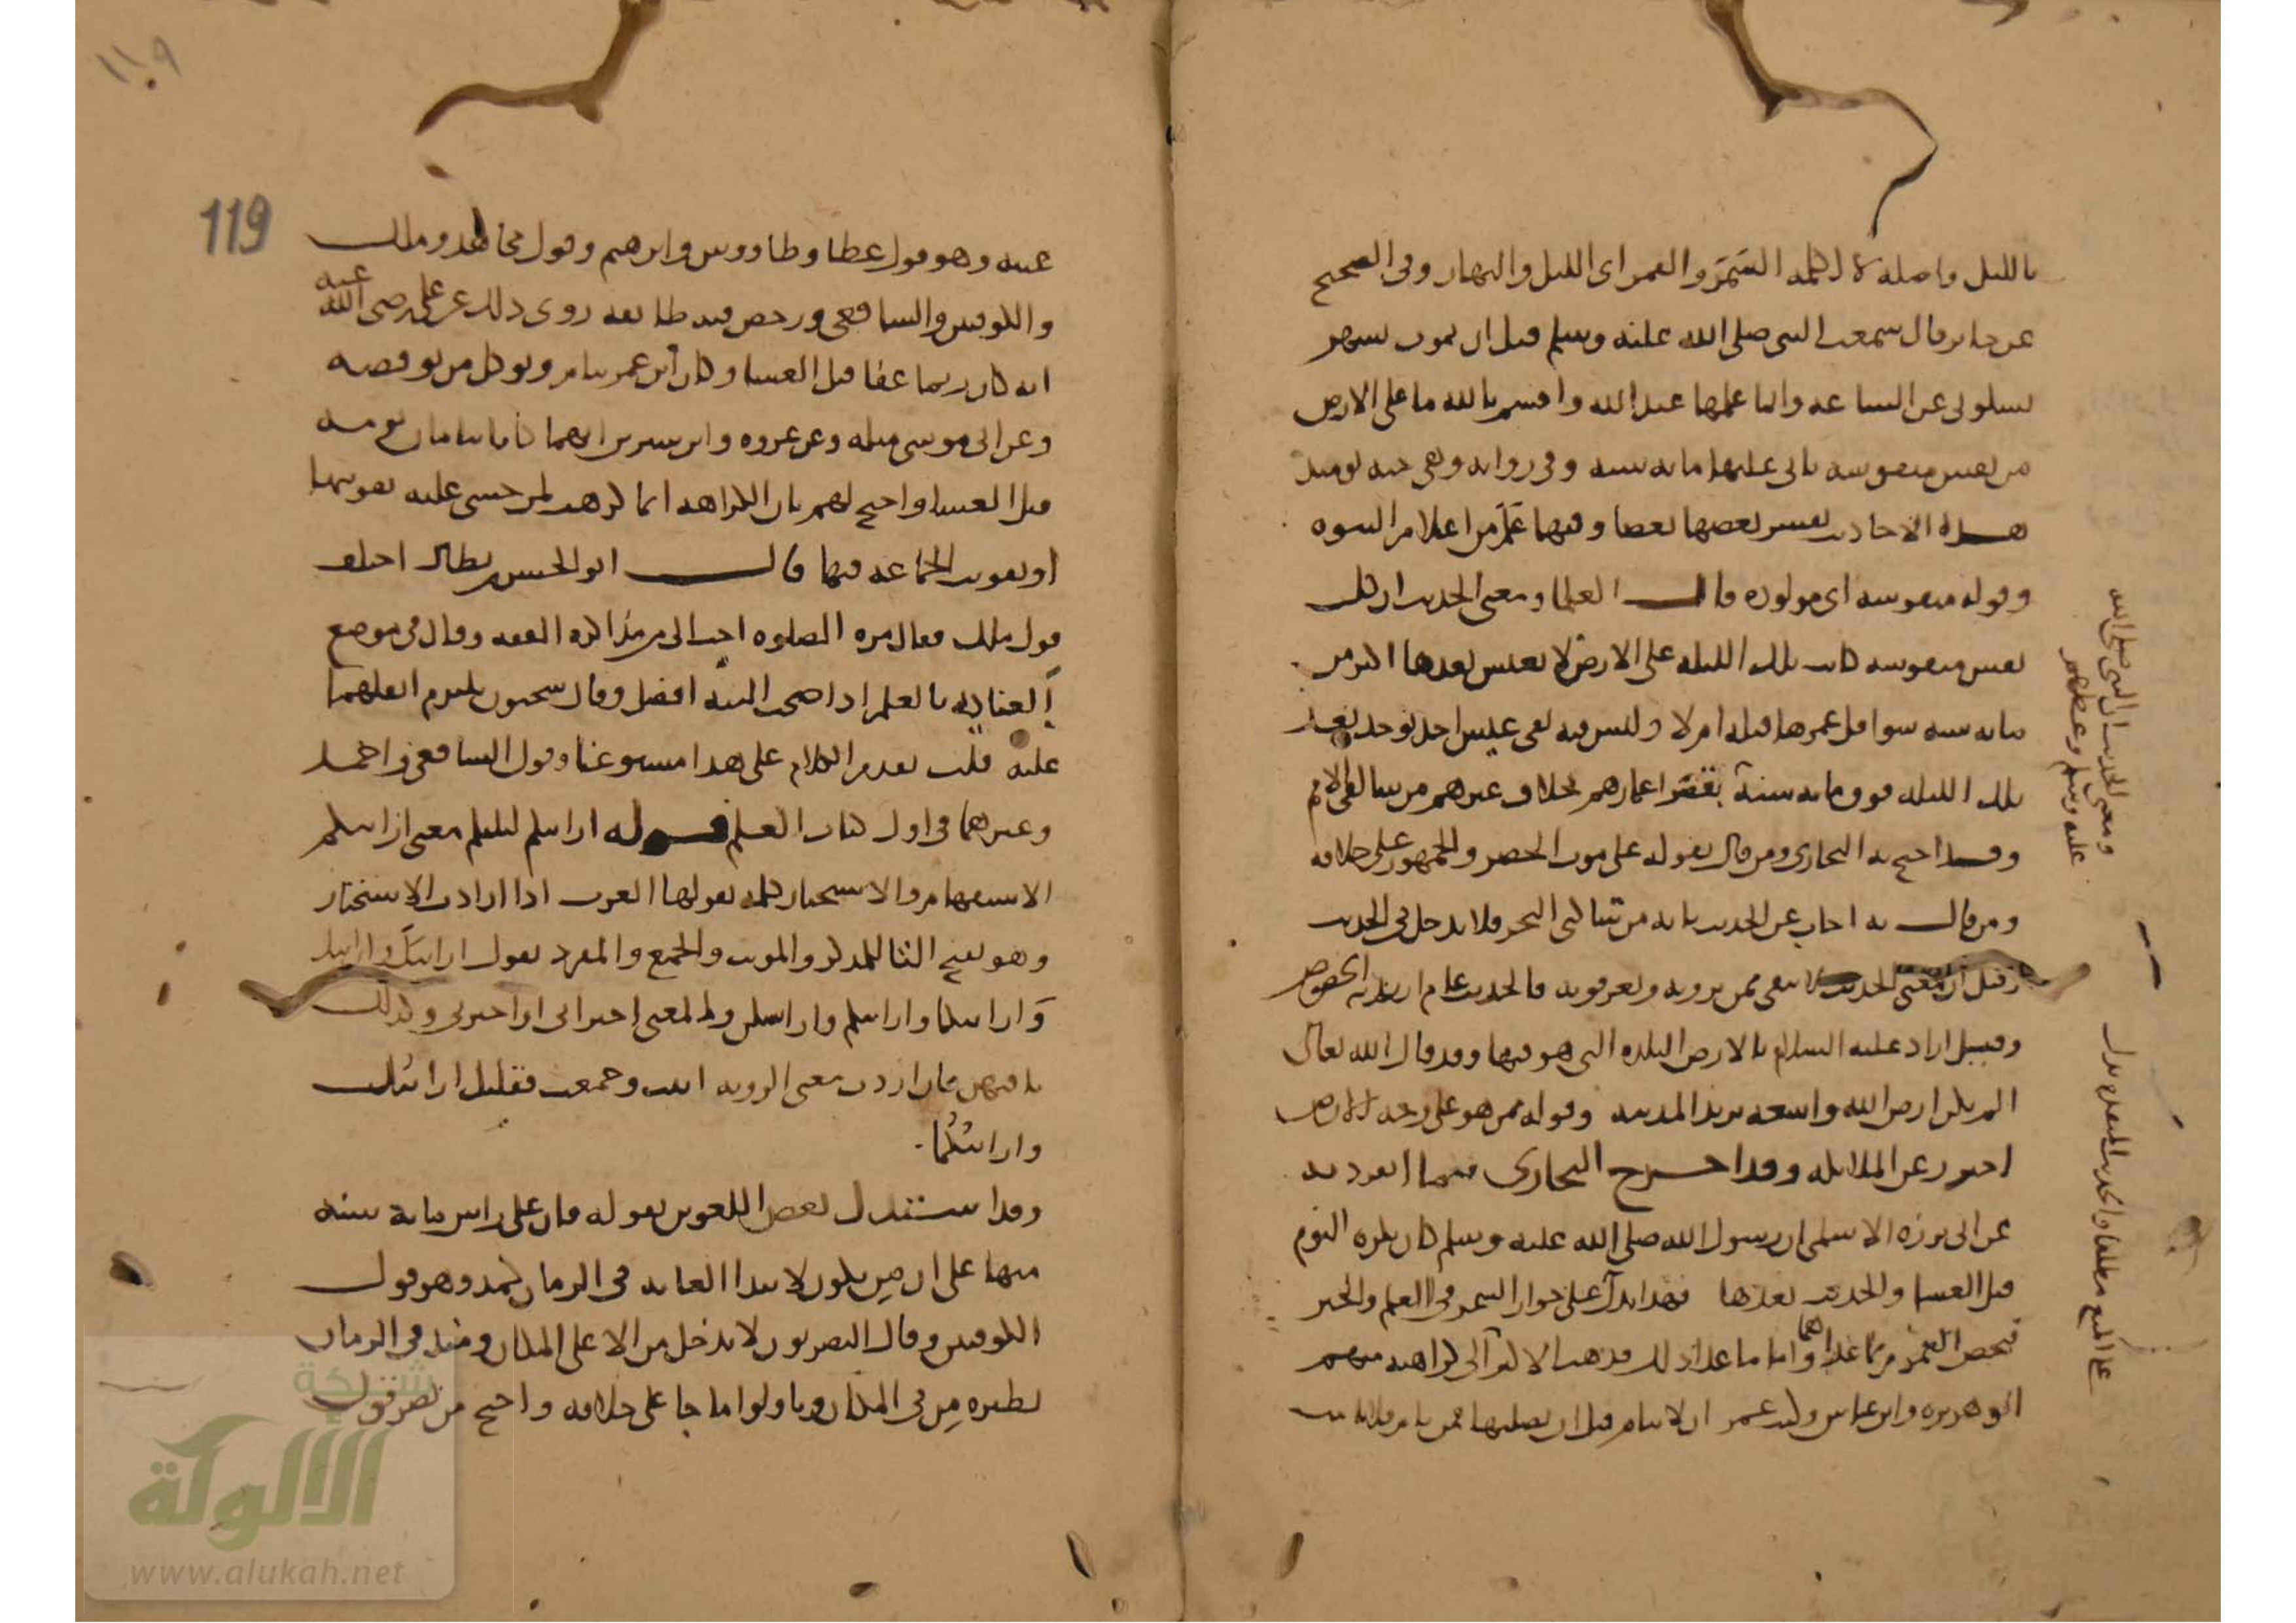 بالليل واصله لا اكلمه السَّمَرَ والقمر اى الليل والنهار وفى الصحيح
عن جابر قال سمعت النبى صلى الله عليه وسلم قبل ان يموت بشهر
تسلونى عن الساعه وانما علمها عند الله واقسم بالله ما على الارض
من نفس منفوسه ياتى عليها مايه سنه وفى روايه وهى حيه يوميذ
هذه الاحاديث تفسر بعضها بعضا وفيها عَلَم من اعلام النبوه
وقوله منفوسه اى مولوده قال العلما ومعنى الحديث ان كل
نفس منفوسه كانت تلك الليله على الارض لا تعيش بعدها اكثر من
مايه سنه سوا قل عمرها قبله ام لا وليس فيه نفى عيش احد يوجد بعد
تلك الليله فوق مايه سنة بقصر اعمارهم بخلاف غيرهم من سالف الامم
وقد احتج به البخارى ومن قال بقوله على موت الخضر والجمهور على خلافه
ومن قال به اجاب عن الحديث بانه من ساكنى البحر فلا يدخل فى الحديث
وقيل ان معنى الحديث لا يبقى ممن ترونه وتعرفونه فالحديث عام اريد به الخصوص
وقيل اراد عليه السلام بالارض البلده التى هو فيها وقد قال الله تعالى
الم تكن ارض الله واسعه يريد المدينه وقوله ممن هو على وجه الارض
احترز عن الملايكه وقد اخرج البخارى فيما انفرد به
عن ابى برزه الاسلمى ان رسول الله صلى الله عليه وسلم كان يكره النوم
قبل العشا والحديث بعدها فهذا يدل على جواز السمر فى العلم والخير
فيخص العموم بما عداهما واما ما عدا ذلك فذهب الاكثر الى كراهته منهم
ابو هريره وابن عباس وكتب عمر ان لا ينام قبل ان يصليها فمن نام فلا نامت
ومعنى الحديث ان النبى صلى الله
عليه وسلم وعظهم
عينه وهو قول عطا وطاووس وابرهيم وقول مجاهد وملك
والكوفيين والشافعى ورخص فيه طايفه روى ذلك عن على رضى الله عنه
انه كان ربما غفا قبل العشا وكان ابن عمر ينام ويوكل من يوقظه
وعن ابى موسى مثله وعن عروه وابن سيرين انهما كانا ينامان نومه
قبل العشا واحتج لهم بان الكراهه انما كرهت لمن خشى عليه تفويتها
او تفويت الجماعه فيها قال ابو الحسن بن بطال اختلف
قول ملك فقال مره الصلوه احب الى من مذاكره الفقه وقال فى موضع
العنايه بالعلم اذا صحت النيه افضل وقال سحنون يلتزم اثقلهما
عليه قلت تقدم الكلام على هذا مستوعبا وقول الشافعى واحمد
وغيرهما فى اول كتاب العلم قوله ارايتكم ليلتكم معنى ارايتكم
الاستفهام والاستخبار كلمه تقولها العرب اذا ارادت الاستخبار
وهو بفتح التا للمذكر والمونث والجمع والمفرد تقول ارايتكَ وارايتك
وَارايتكما وارايتكم وارايتكن والمعنى اخبرانى او اخبرنى وكذلك
باقيهن فان اردت معنى الرويه انثت وجمعت فقلت ارايتك
وارايتكما
وقد استدل بعض اللغويين بقوله فان على راس مايه سنه
منها على ان مِن تكون لابتدا الغايه فى الزمان كمذ وهو قول
الكوفيين وقال البصريون لا تدخل من الا على المكان ومنذ فى الزمان
نظيره مِن فى المكان وتاولوا ما جا على خلافه واحتج من نصر قول
119
١١٩
شبكة
الألوكة
www.alukah.net